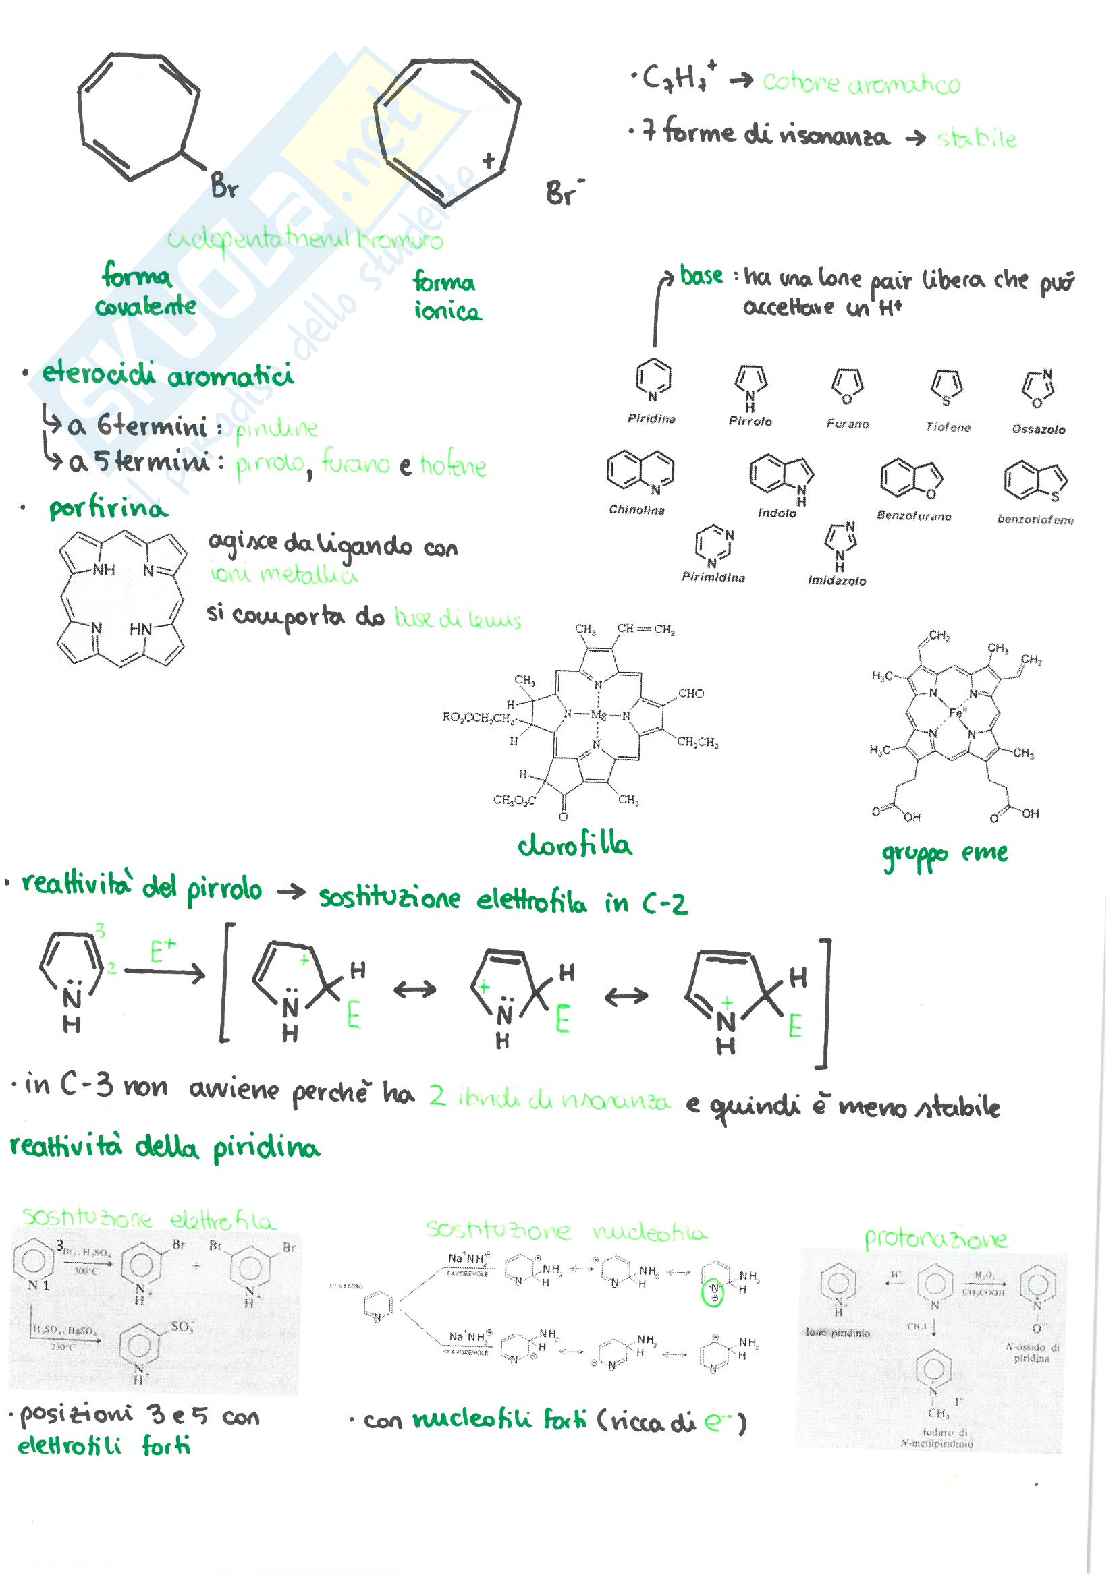 · C₇H₇⁺ → catione aromatico
· 7 forme di risonanza → stabile
Br
+
Br⁻
forma covalente
forma ionica
SKUOLA.net
il paradiso dello studente
base : ha una lone pair libera che può
accettare un H⁺
· eterocicli aromatici
↳ a 6 termini : piridine
↳ a 5 termini : pirrolo, furano e tiofene
N
N H
O
S
N O
Piridina
Pirrolo
Furano
Tiofene
Ossazolo
N
N H
O
S
Chinolina
Indolo
Benzofurano
benzotiofene
N N
N N H
Pirimidina
Imidazolo
· porfirina
NH N
N HN
agisce da ligando con
ioni metallici
si comporta da base di Lewis
CH₃ CH=CH₂
CH₃
H CHO
RO₂CCH₂CH₂
N N Mg N N
H CH₂CH₃
H
CH₃O₂C O CH₃
clorofilla
CH₂
CH₃ CH₂
H₃C
N N Fe N N
H₃C CH₃
O OH O OH
gruppo eme
· reattività del pirrolo → sostituzione elettrofila in C-2
3
2
E⁺
N H
+ H E N H
+ H E N H
H E + N H
· in C-3 non avviene perchè ha 2 ibridi di risonanza e quindi è meno stabile
reattività della piridina
sostituzione elettrofila
3
N 1
Br₂, H₂SO₄
300°C
Br
N H⁺
+
Br Br
N H⁺
H₂SO₄, HgSO₄
230°C
SO₃⁻
N H⁺
· posizioni 3 e 5 con
elettrofili forti
sostituzione nucleofila
Na⁺NH₂⁻
FAVOREVOLE
NH₂ H
NH₂ H
NH₂ H
N
Na⁺NH₂⁻
NH₂ H
NH₂ H
NH₂ H
· con nucleofili forti (ricca di e⁻)
protonazione
H⁺
H₂O₂
CH₃COOH
N H
N
N O⁻
Ione piridinio
CH₃I
N-ossido di
piridina
N
CH₃ I⁻
Ioduro di
N-metilpiridinio